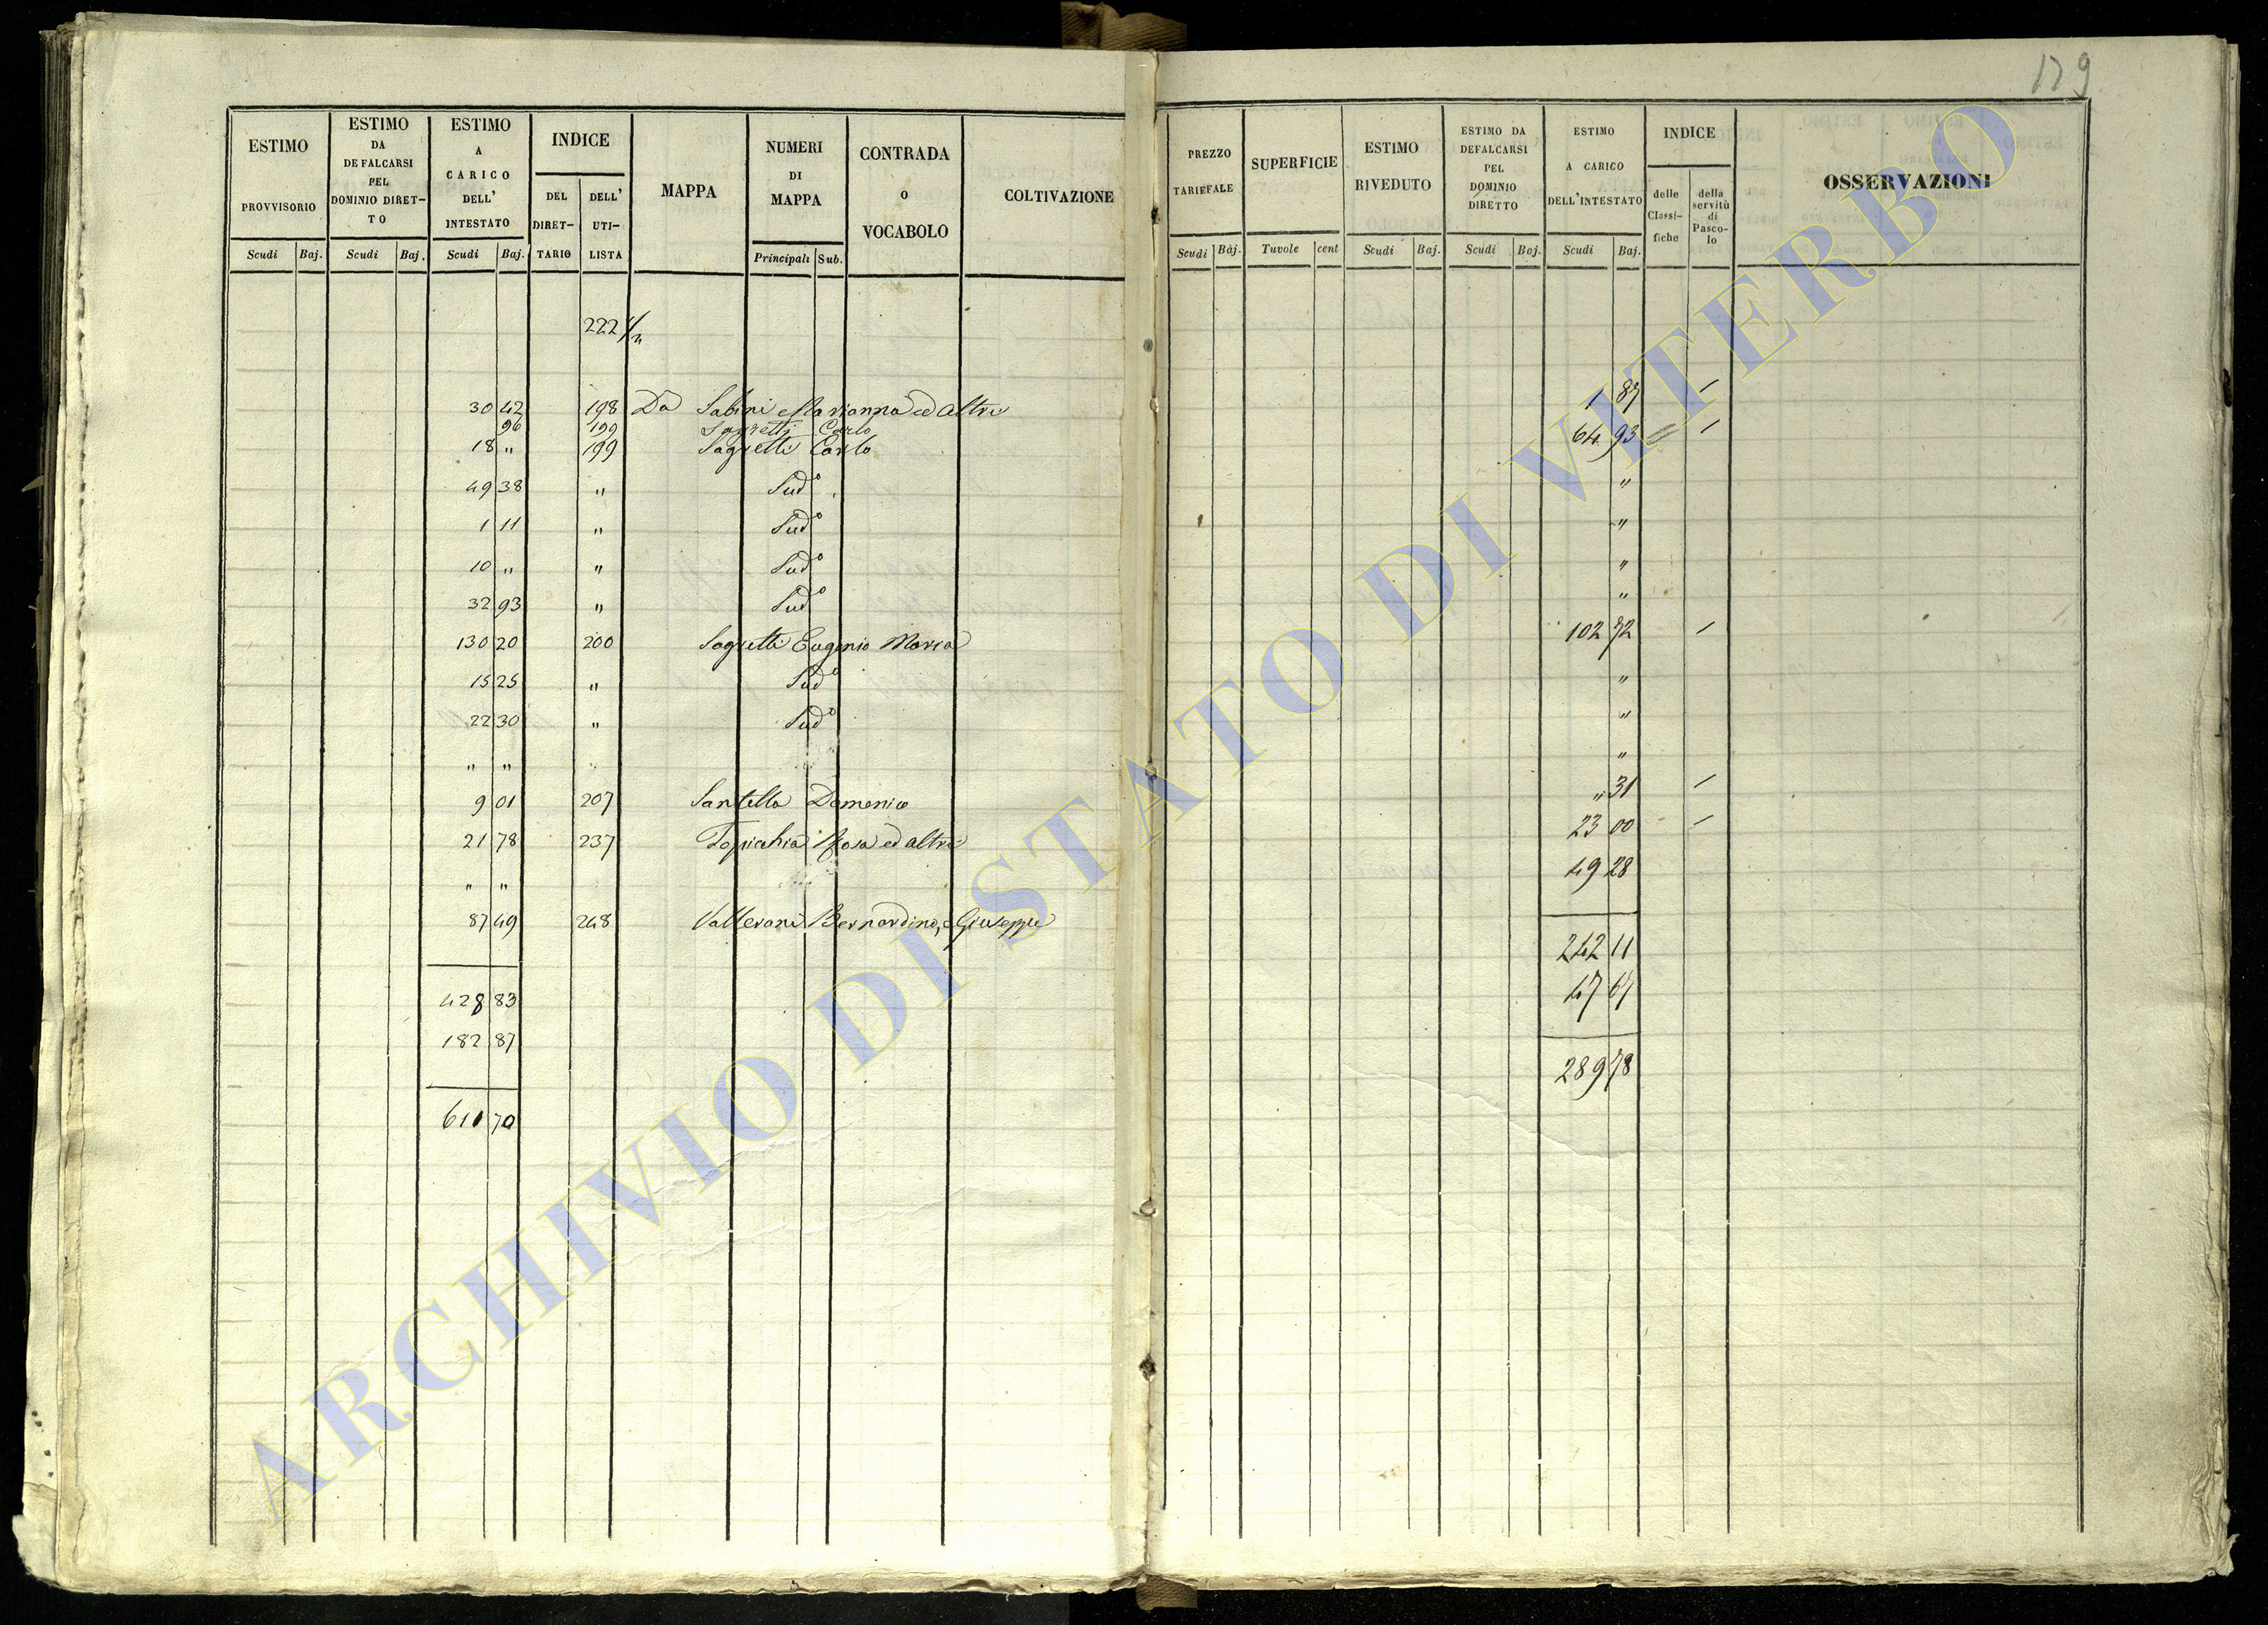 179
ESTIMO PROVVISORIO
ESTIMO DA DEFALCARSI PEL DOMINIO DIRET-TO
ESTIMO A CARICO DELL' INTESTATO
INDICE
DEL DIRET-TARIO
DELL' UTI-LISTA
MAPPA
NUMERI DI MAPPA
CONTRADA O VOCABOLO
COLTIVAZIONE
Scudi Baj. Scudi Baj. Scudi Baj. Principali Sub.
222 1/2
30 42 198 Da Sabini Marianna ed altri
96 199 Sagretti Carlo
18 " 199 Sagretti Carlo
49 38 " Sudo
1 11 " Sudo
10 " " Sudo
32 93 " Sudo
130 20 200 Sagretti Eugenio Maria
15 25 " Sudo
22 30 " Sudo
" " "
9 01 207 Santella Domenico
21 78 237 Topicchia Rosa ed altri
" "
87 49 248 Vallerani Bernardino, e Giuseppe
428 83
182 87
611 70
PREZZO TARIFFALE
SUPERFICIE
ESTIMO RIVEDUTO
ESTIMO DA DEFALCARSI PEL DOMINIO DIRETTO
ESTIMO A CARICO DELL'INTESTATO
INDICE
delle Classi-fiche
della servitù di Pasco-lo
OSSERVAZIONI
Scudi Baj. Tavole cent Scudi Baj. Scudi Baj. Scudi Baj.
1 87 /
64 93 /
"
"
"
"
102 72 /
"
"
"
" 31 /
23 00 /
49 28
242 11
47 67
289 78
ARCHIVIO DI STATO DI VITERBO